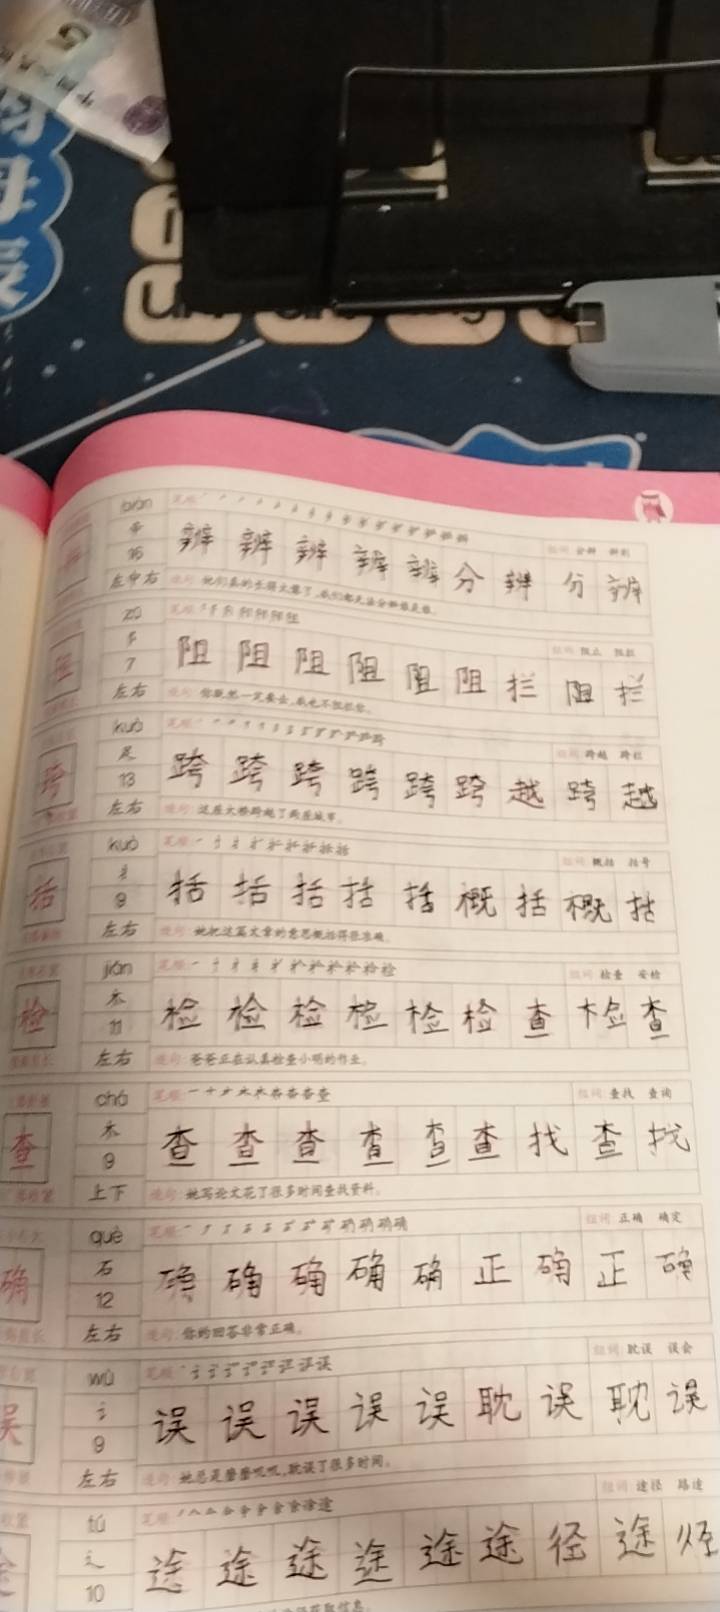 5
母
表
biàn
笔顺
组词 分辨 辨别
16
辨 辨 辨 辨 辨 分 辨 分 辨
左中右
zǔ
笔顺
组词 阻止 阻拦
阻
7
阻 阻 阻 阻 阻 阻 拦 阻 拦
左右
造句 你既然一定要去,我也不阻拦你。
kuà
笔顺
组词 跨越 跨栏
足
跨
13
跨 跨 跨 跨 跨 跨 越 跨 越
左右
造句 这座大桥跨越了两座城市。
kuò
笔顺
组词 概括 括号
扌
括
9
括 括 括 括 括 概 括 概 括
左右
造句 她把这篇文章的意思概括得很准确。
jiǎn
笔顺
组词 检查 安检
木
检
11
检 检 检 检 检 检 查 检 查
左右
造句 爸爸正在认真检查小明的作业。
chá
笔顺
组词 查找 查询
木
查
9
查 查 查 查 查 查 找 查 找
上下
造句 她写论文花了很多时间查找资料。
què
笔顺
组词 正确 确定
石
确
12
确 确 确 确 确 正 确 正 确
左右
造句 你的回答非常正确。
wù
笔顺
组词 耽误 误会
讠
误
9
误 误 误 误 误 耽 误 耽 误
左右
造句 她总是磨磨叽叽,耽误了很多时间。
tú
笔顺
组词 途径 路途
辶
途
10
途 途 途 途 途 途 径 途 径
获取信息。